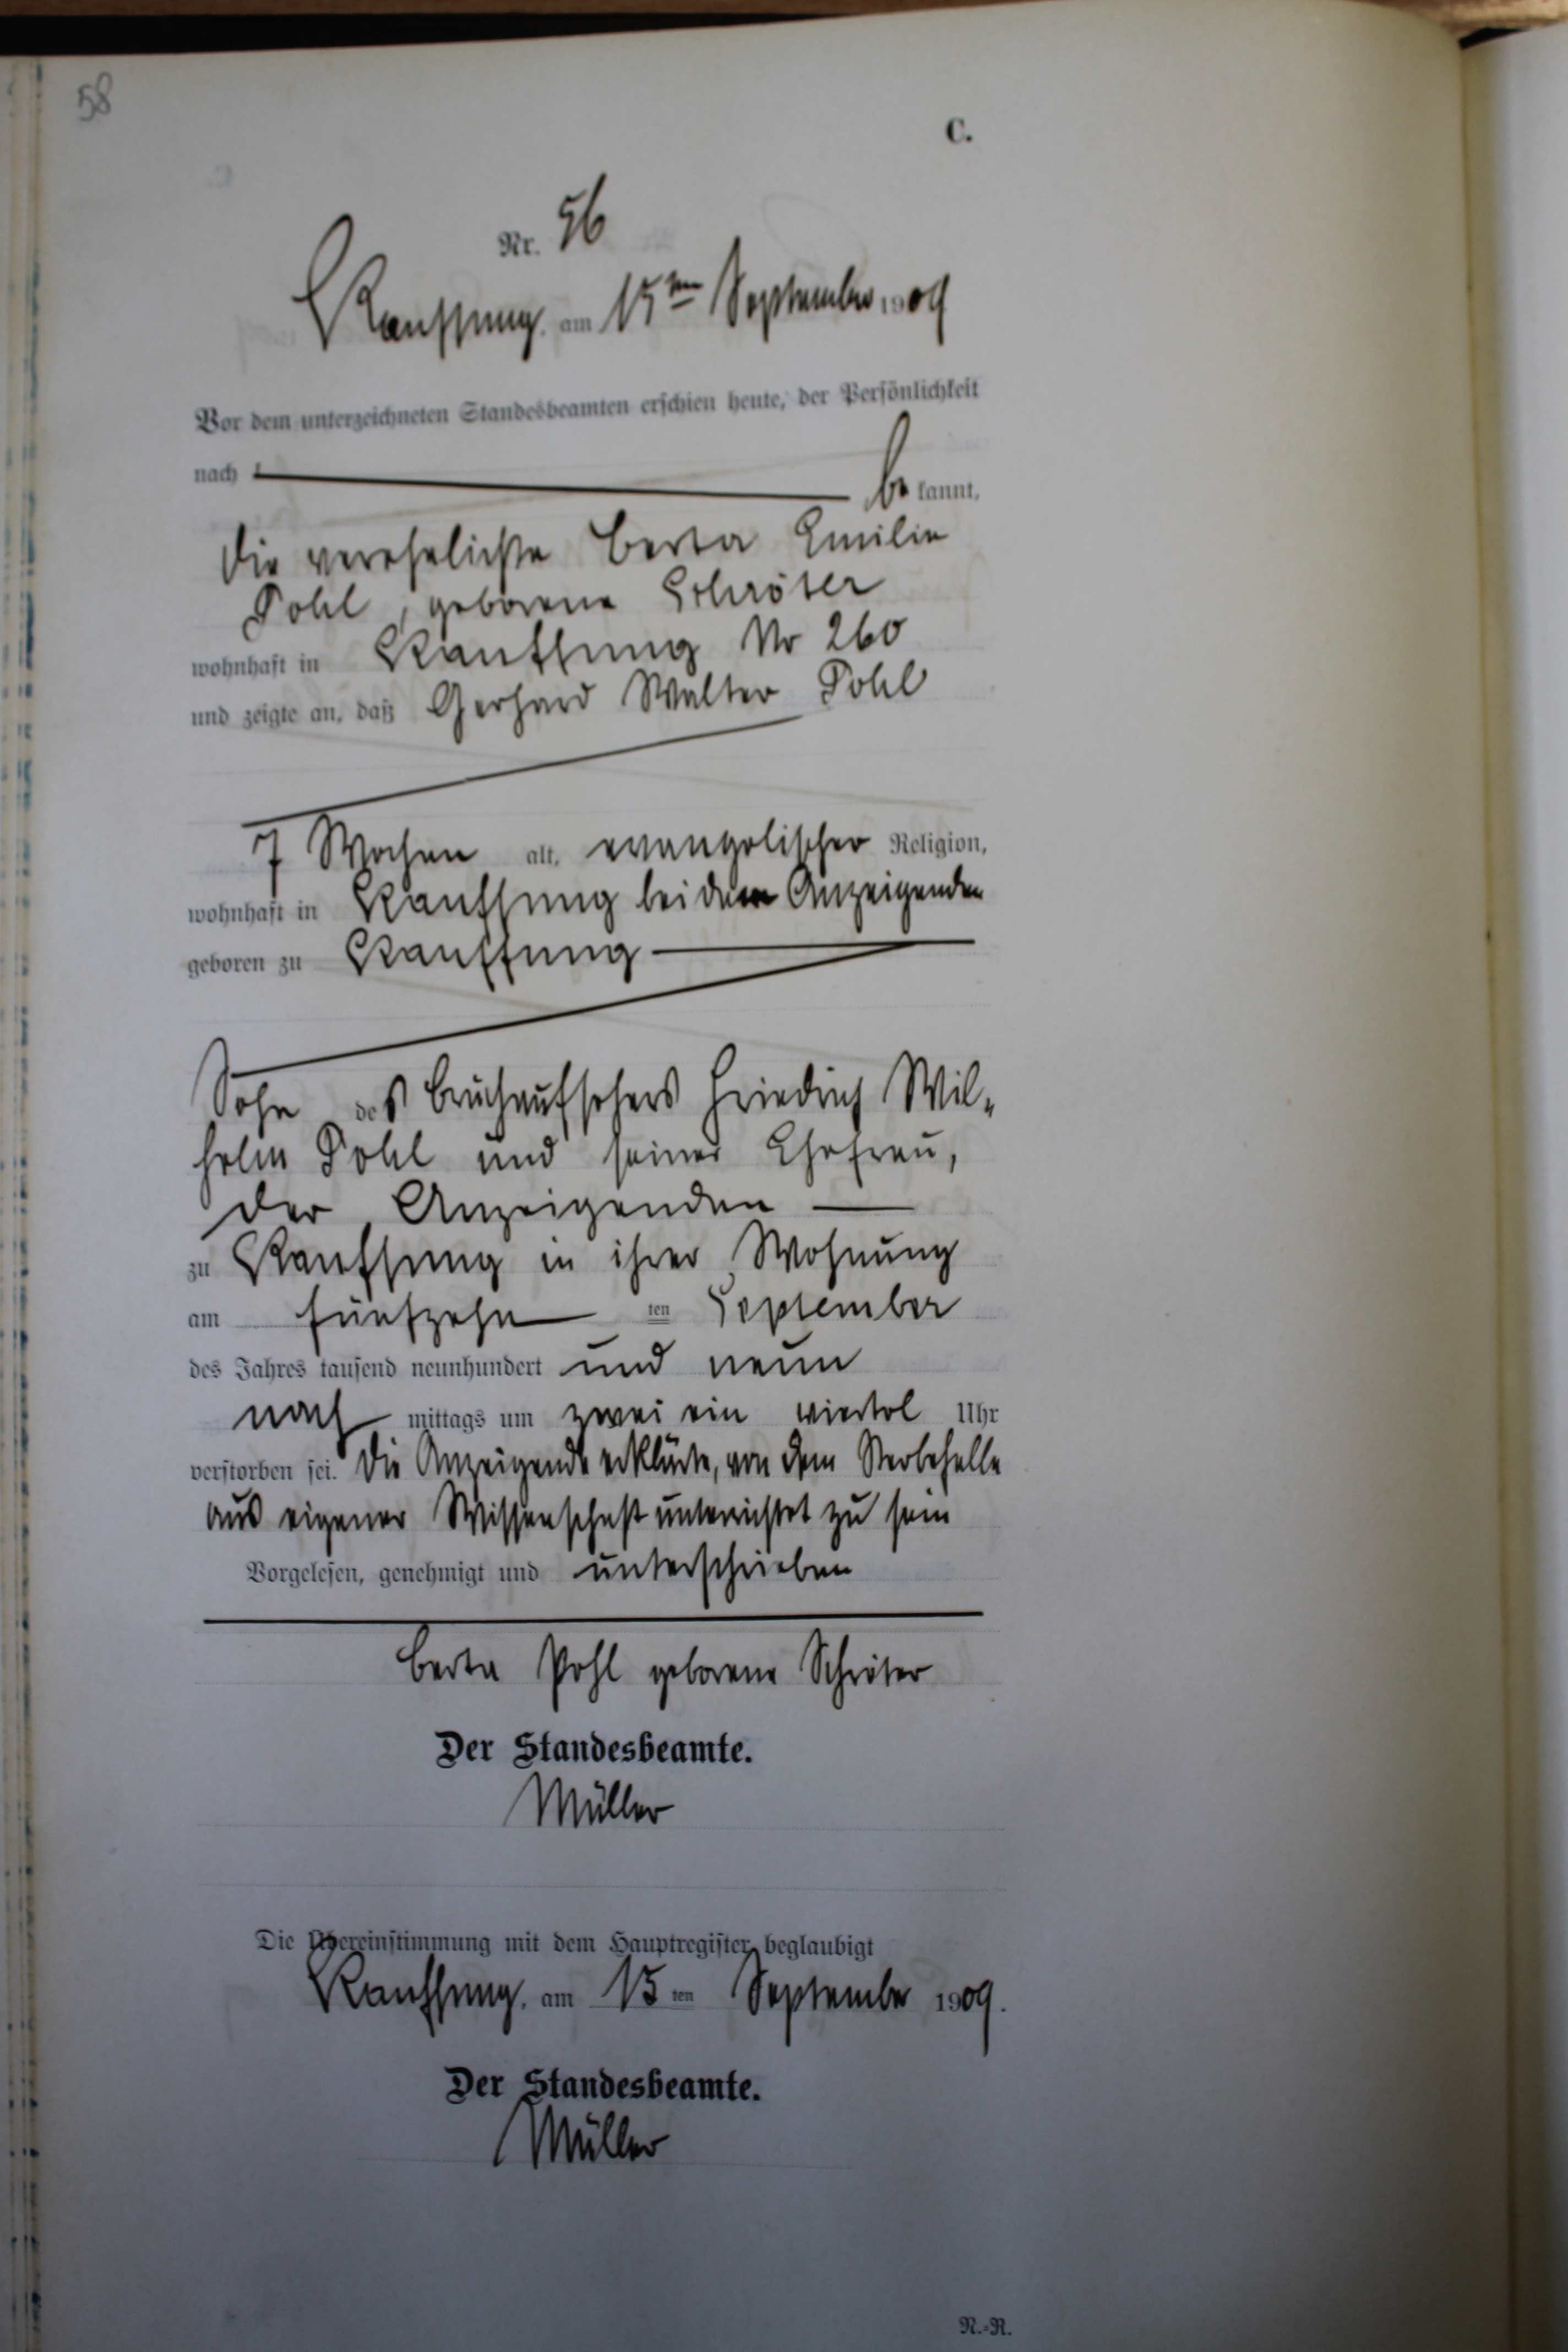 58
C.
Nr. 56
Kauffung, am 15ten September 1909
Vor dem unterzeichneten Standesbeamten erschien heute, der Persönlichkeit
nach be kannt,
die verehelichte Berta Emilie
Pohl, geborene Schröter
wohnhaft in Kauffung Nr 260
und zeigte an, daß Gerhard Walter Pohl
7 Wochen alt, evangelischer Religion,
wohnhaft in Kauffung bei der Anzeigenden
geboren zu Kauffung
Sohn des Bruchaufsehers Friedrich Wil-
helm Pohl und seiner Ehefrau,
der Anzeigenden
zu Kauffung in ihrer Wohnung
am fünfzehn ten September
des Jahres tausend neunhundert und neun
nach mittags um zwei ein viertel Uhr
verstorben sei. Die Anzeigende erklärte, von dem Sterbefalle
aus eigener Wissenschaft unterrichtet zu sein
Vorgelesen, genehmigt und unterschrieben
Berta Pohl geborene Schröter
Der Standesbeamte.
Müller
Die Übereinstimmung mit dem Hauptregister beglaubigt
Kauffung, am 15 ten September 1909.
Der Standesbeamte.
Müller
N.-R.